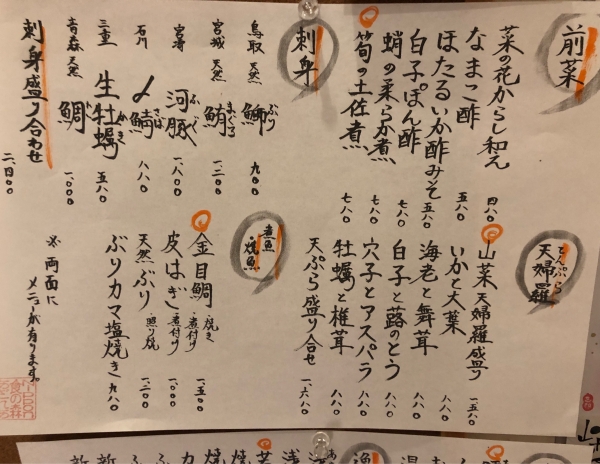 前菜
菜の花からし和え 四八〇
なまこ酢 五八〇
ほたるいか酢みそ 五八〇
白子ぽん酢 七八〇
蛸の柔らか煮 七八〇
筍の土佐煮 七八〇
刺身
鳥取 天然 鰤 ぶり 九〇〇
宮城 天然 鮪 まぐろ 一、二〇〇
宮崎 河豚 ふぐ 一、八〇〇
石川 〆鯖 さば 八八〇
三重 生牡蠣 かき 五八〇
青森 天然 鯛 一、〇〇〇
刺身盛り合わせ 二、四〇〇
天婦羅 てんぷら
山菜天婦羅盛り 一、五八〇
いかと大葉 八八〇
海老と舞茸 八八〇
白子と蕗のとう 八八〇
穴子とアスパラ 八八〇
牡蠣と椎茸 八八〇
天ぷら盛り合せ 一、六八〇
煮魚・焼魚
金目鯛 ・焼き ・煮付け 一、五〇〇
皮はぎ ・煮付け 一、〇〇〇
天然ぶり ・照り焼 一、二〇〇
ぶりカマ塩焼き 九八〇
※両面にメニューが有ります。